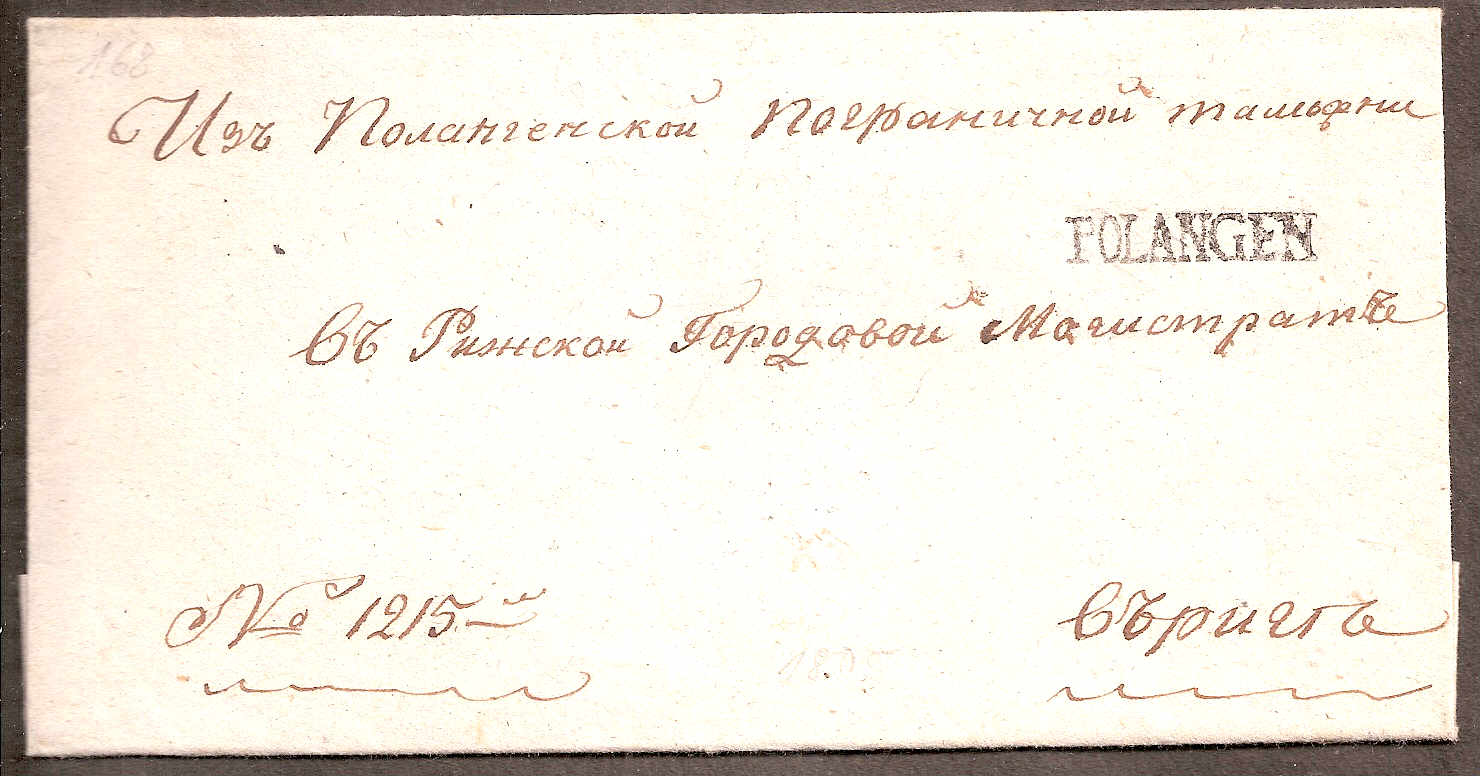 168
Изъ Полангенской пограничной таможни
POLANGEN
Въ Рижской Городовой Магистратъ
№ 1215
Въ ригѣ